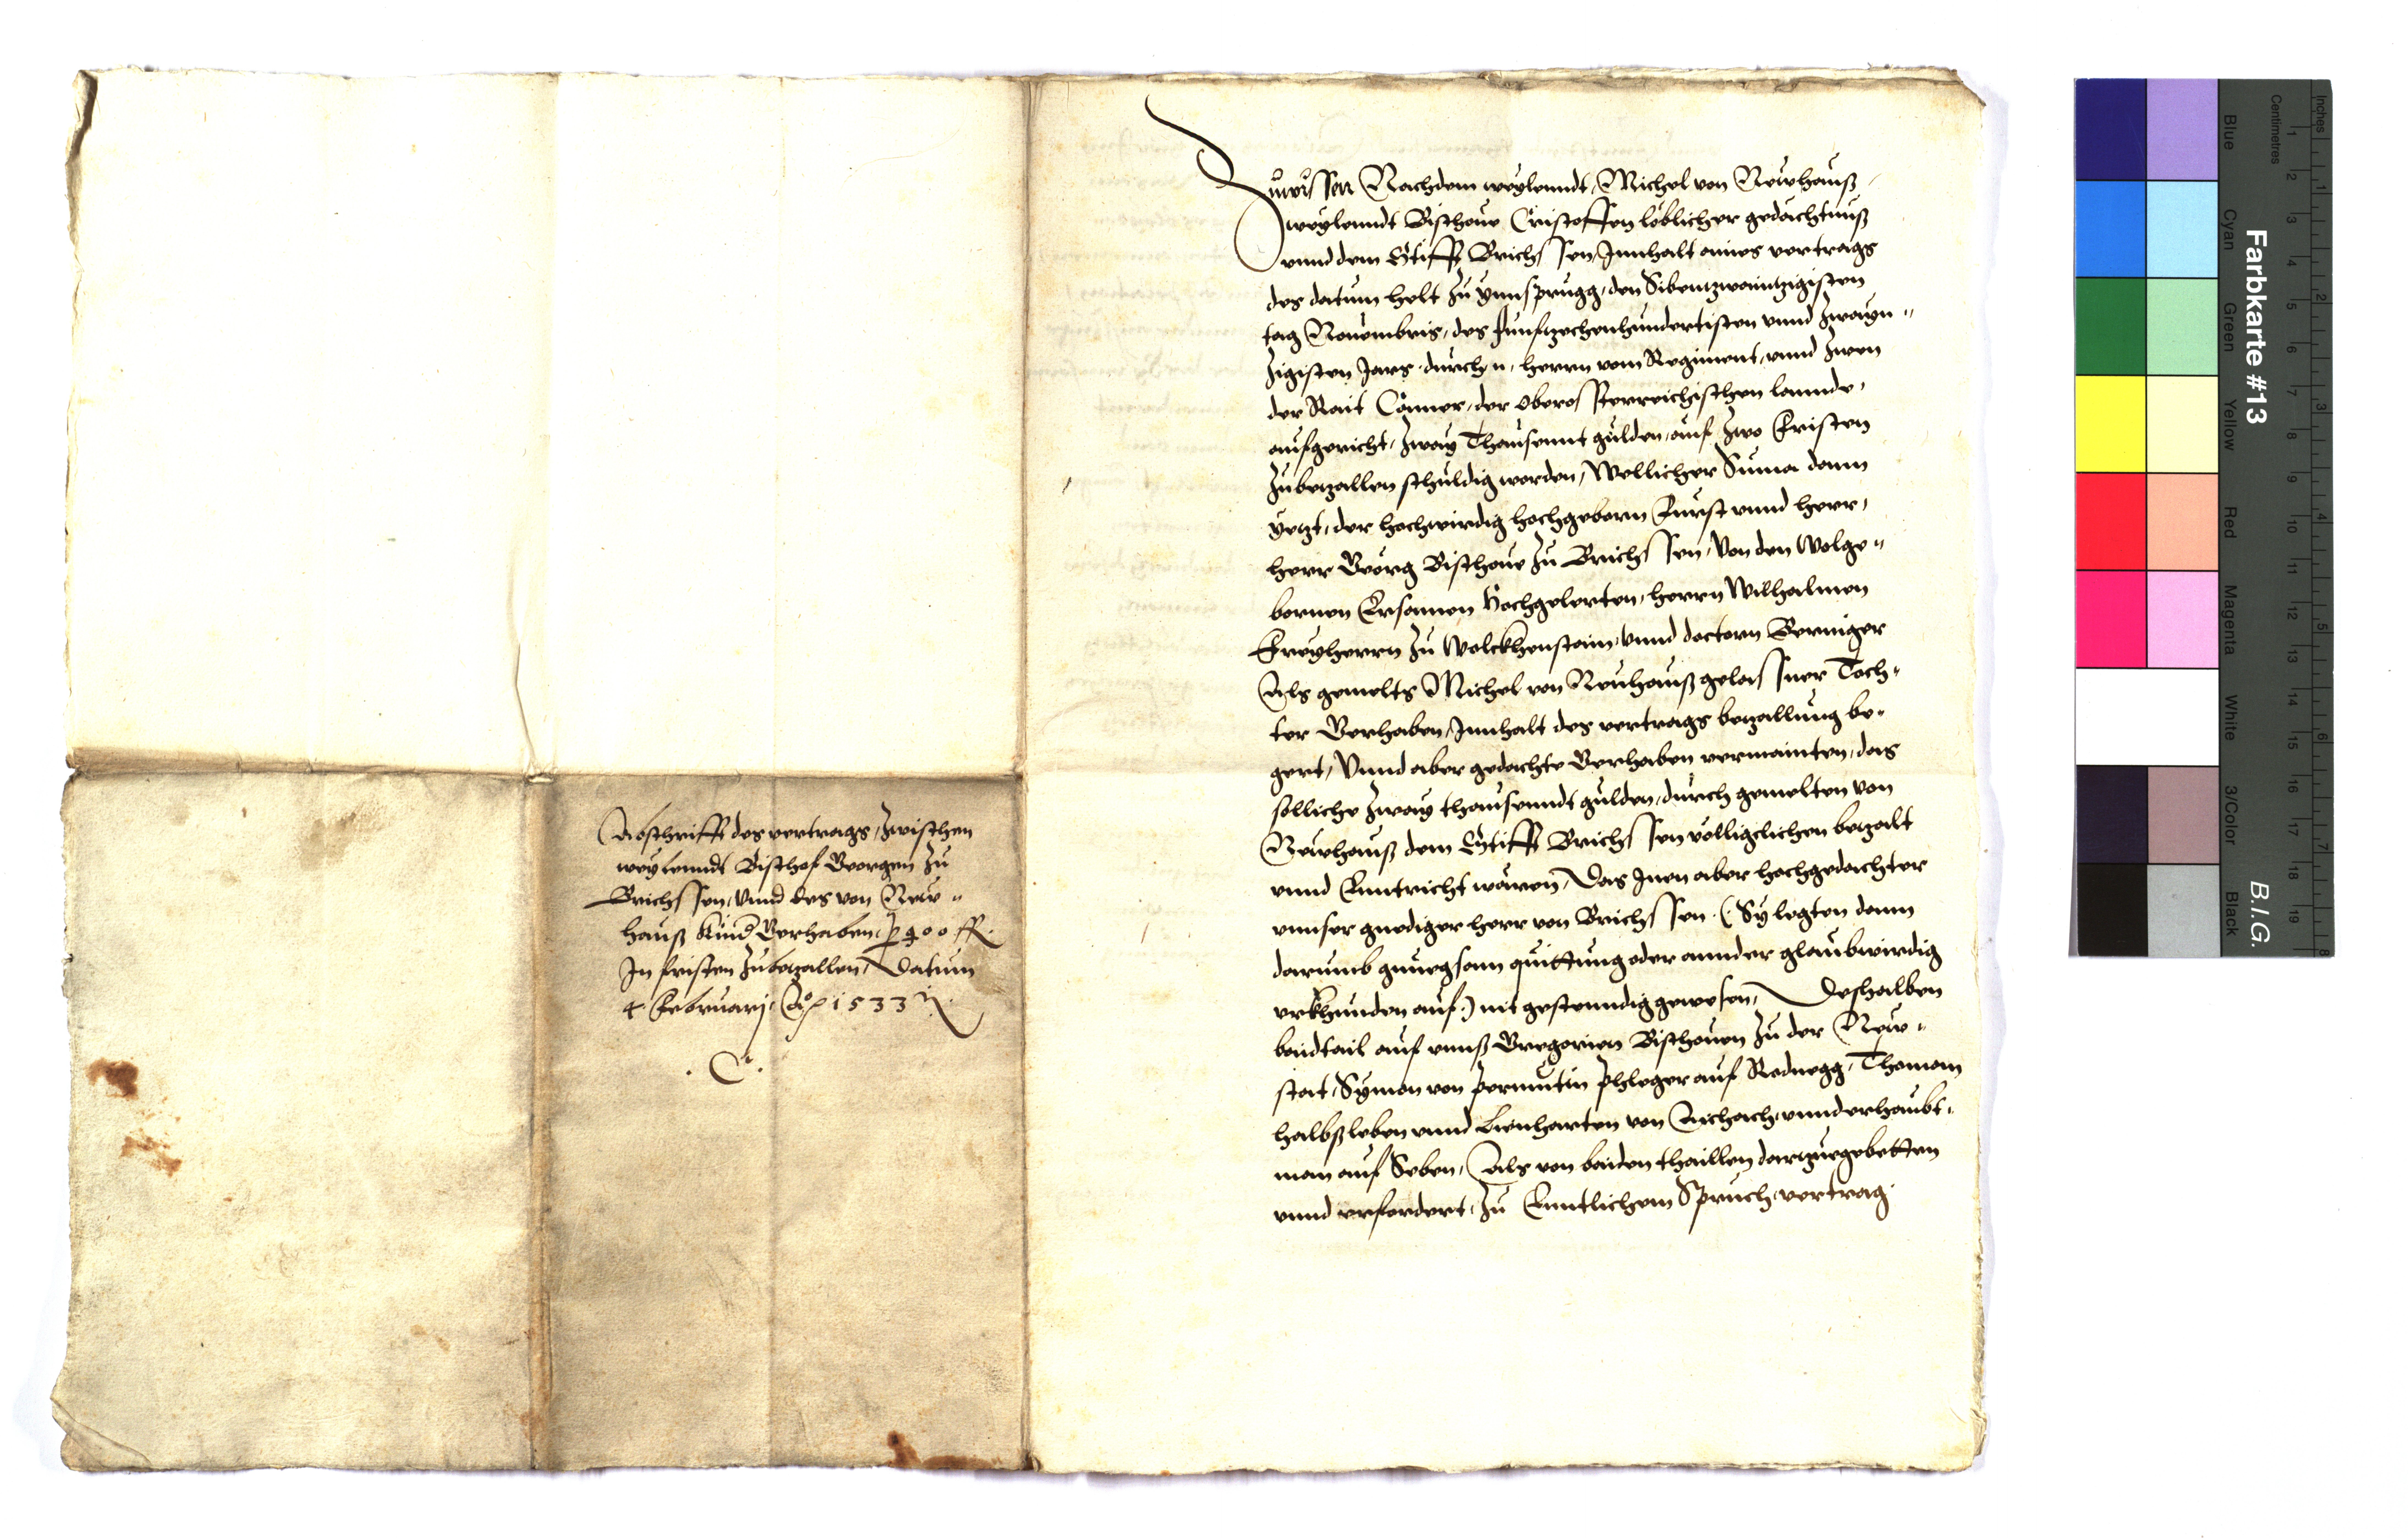 Abschrifft des vertrags, zwischen
weylenndt Bischof Georgen zu
Brichssen, Vnnd des von New„
hauß Kind Gerhaben, p 400 fl.
In fristen zubetzallen, Datum
4. Februarij, Ao 1533
. C .
Zuwissen Nachdem weylenndt, Michel von Newhauß
weylenndt Bischoue Cristoffen löblicher gedächtnuß
vnnd dem Stifft Brichssen, Innhalt aines vertrags
des datum helt zu ynnsprugg, den Sibentzwaintzigisten
tag Nouembris, des funfftzechenhundertisten vnnd zwayn„
zigisten Jars, durch n, herrn vom Regiment, vnnd zwen
der Rait Camer, der oberosterreichischen lannde,
aufgericht, zway Thausennt gulden, auf zwo Fristen
zubetzallen schuldig worden, Wellicher Suma dann
yetzt, der hochwirdig hochgeborn Furst vnnd herr,
herr Georg Bischoue zu Brichssen, Von den Wolge„
bornen Ersamen hochgelerten, herrn Wilhalmen
Freyherrn zu Wolckhenstain, vnnd doctorn Gereniger
Als gemelts Michel von Neuhauß gelassner Toch„
ter Gerhaben, Innhalt des vertrags betzallung be„
gert, Vnnd aber gedachte Gerhaben vermainten, das
solliche zway thausenndt gulden, durch gemelten von
Newhauß dem Stifft Brichssen völligclichen betzalt
vnnd Enntricht wären, Das Inen aber hochgedachter
vnnser gnediger herr von Brichssen (: Sy legten dann
darumb gnuegsam quittung oder annder glaubwirdig
vrkhunden auf :) nit gestenndig gewesen, Deshalben
baidtail auf vnnß Gregorien Bischouen zu der New„
stat, Symon von permutin phleger auf Rodnegg, Thoman
halbßleben vnnd Lienharten von Aichach, vnnderhaubt„
man auf Seben, Als von baiden thaillen dartzuegebetten
vnnd erfordert, zu Enntlichem Spruch, vertrag
Farbkarte #13
B.I.G.
Inches
Centimetres
Blue
Cyan
Green
Yellow
Red
Magenta
White
3/Color
Black
1 2 3 4 5 6 7 8 9 10 11 12 13 14 15 16 17 18 19
1 2 3 4 5 6 7 8